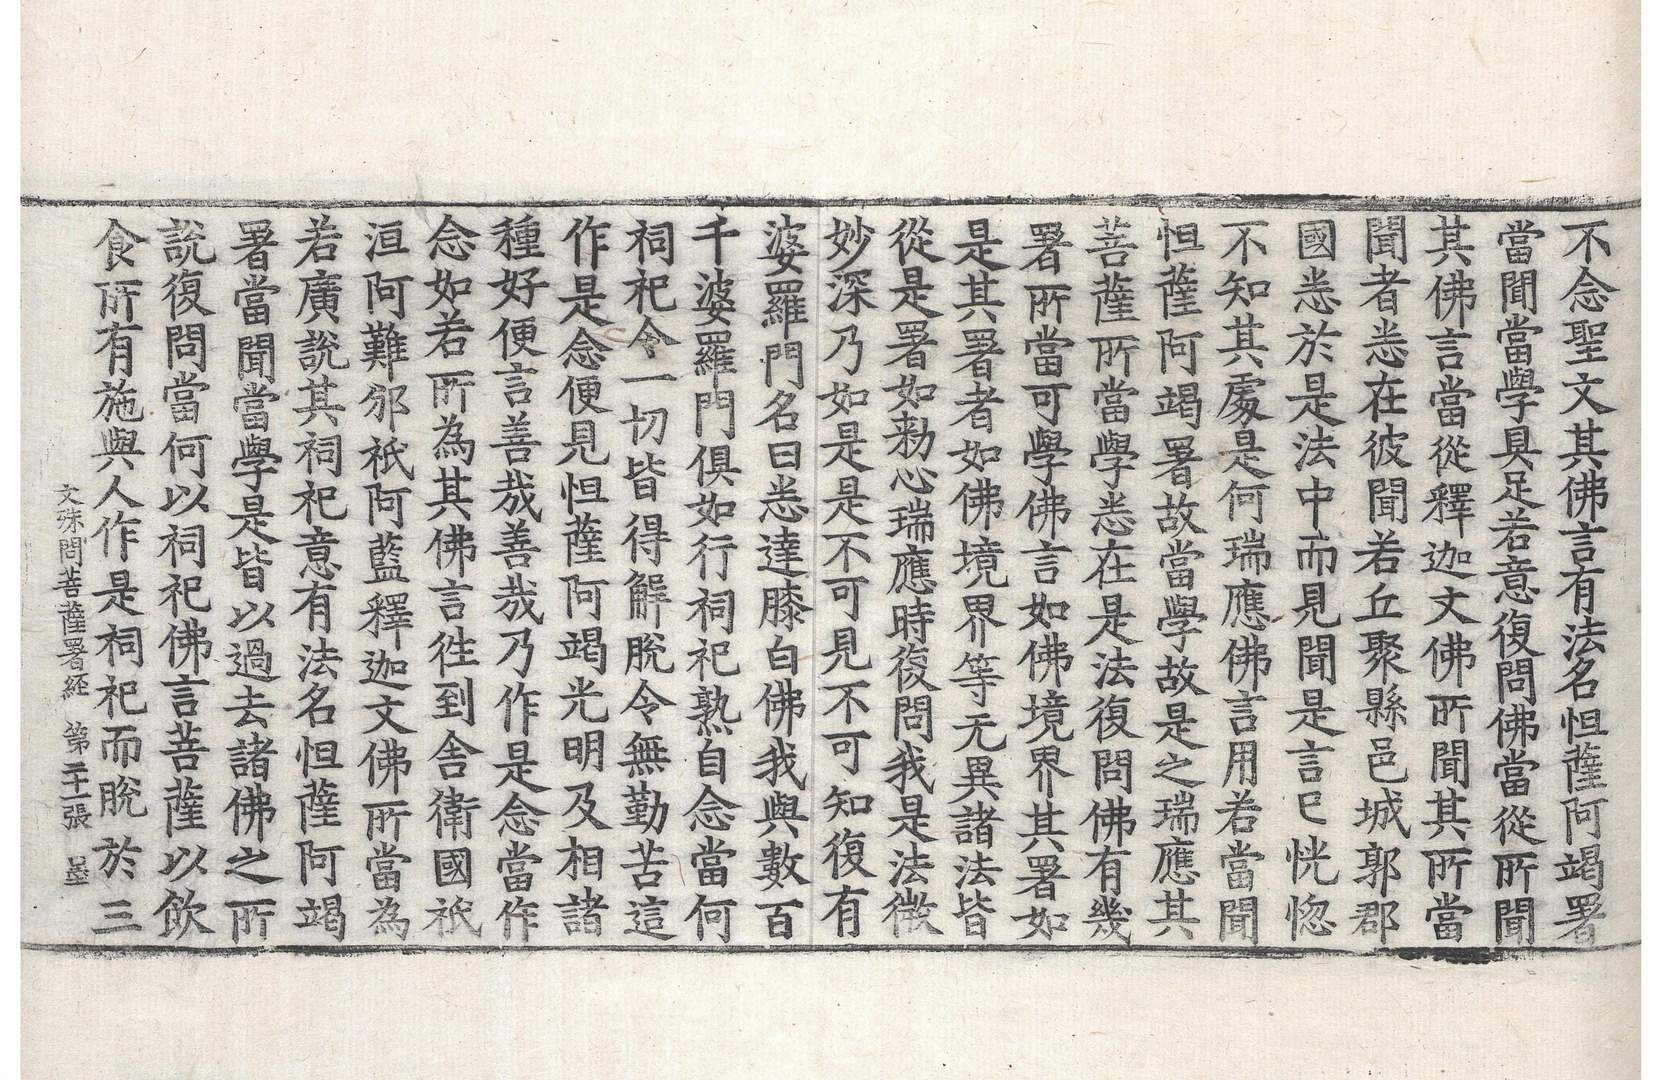 不念聖文其佛言有法名怛薩阿竭署
當聞當學具足若意復問佛當從所聞
其佛言當從釋迦文佛所聞其所當
聞者悉在彼聞若丘聚縣邑城郭郡
國悉於是法中而見聞是言已恍惚
不知其處是何瑞應佛言用若當聞
怛薩阿竭署故當學故是之瑞應其
菩薩所當學悉在是法復問佛有幾
署所當可學佛言如佛境界其署如
是其署者如佛境界等无異諸法皆
從是署如勑心瑞應時復問我是法微
妙深乃如是是不可見不可知復有
婆羅門名曰悉達膝白佛我與數百
千婆羅門俱如行祠祀熟自念當何
祠祀令一切皆得解脫令無勤苦這
作是念便見怛薩阿竭光明及相諸
種好便言善哉善哉乃作是念當作
念如若所為其佛言往到舍衛國祇
洹阿難邠祇阿藍釋迦文佛所當為
若廣說其祠祀意有法名怛薩阿竭
署當聞當學是皆以過去諸佛之所
說復問當何以祠祀佛言菩薩以飲
食所有施與人作是祠祀而脫於三
文殊問菩薩署経 第二十一張 墨